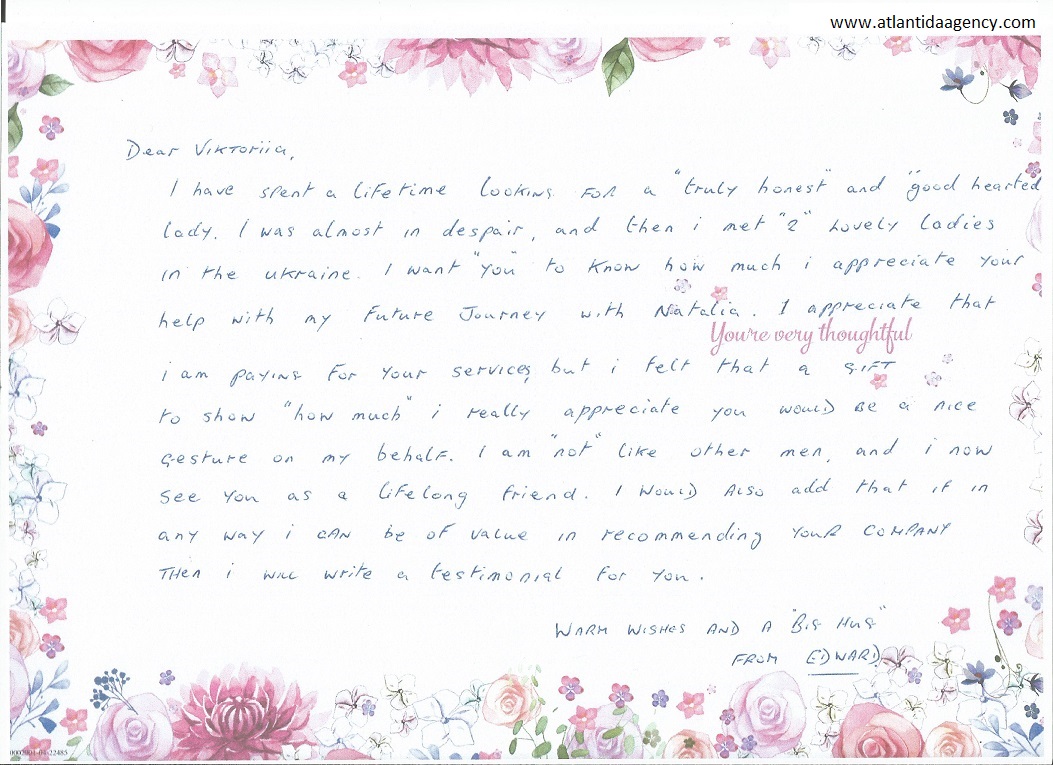 www.atlantidaagency.com
Dear Viktoriia,
I have spent a lifetime looking for a "truly honest" and "good hearted
lady. I was almost in despair, and then i met "2" lovely ladies
in the ukraine. I want "you" to know how much i appreciate your
help with my future journey with Natalia. I appreciate that
You're very thoughtful
i am paying for your services, but i felt that a gift
to show "how much" i really appreciate you would be a nice
gesture on my behalf. I am "not" like other men, and i now
see you as a lifelong friend. I would also add that if in
any way i can be of value in recommending your company
then i will write a testimonial for you.
Warm wishes and a "Big Hug"
from Edward